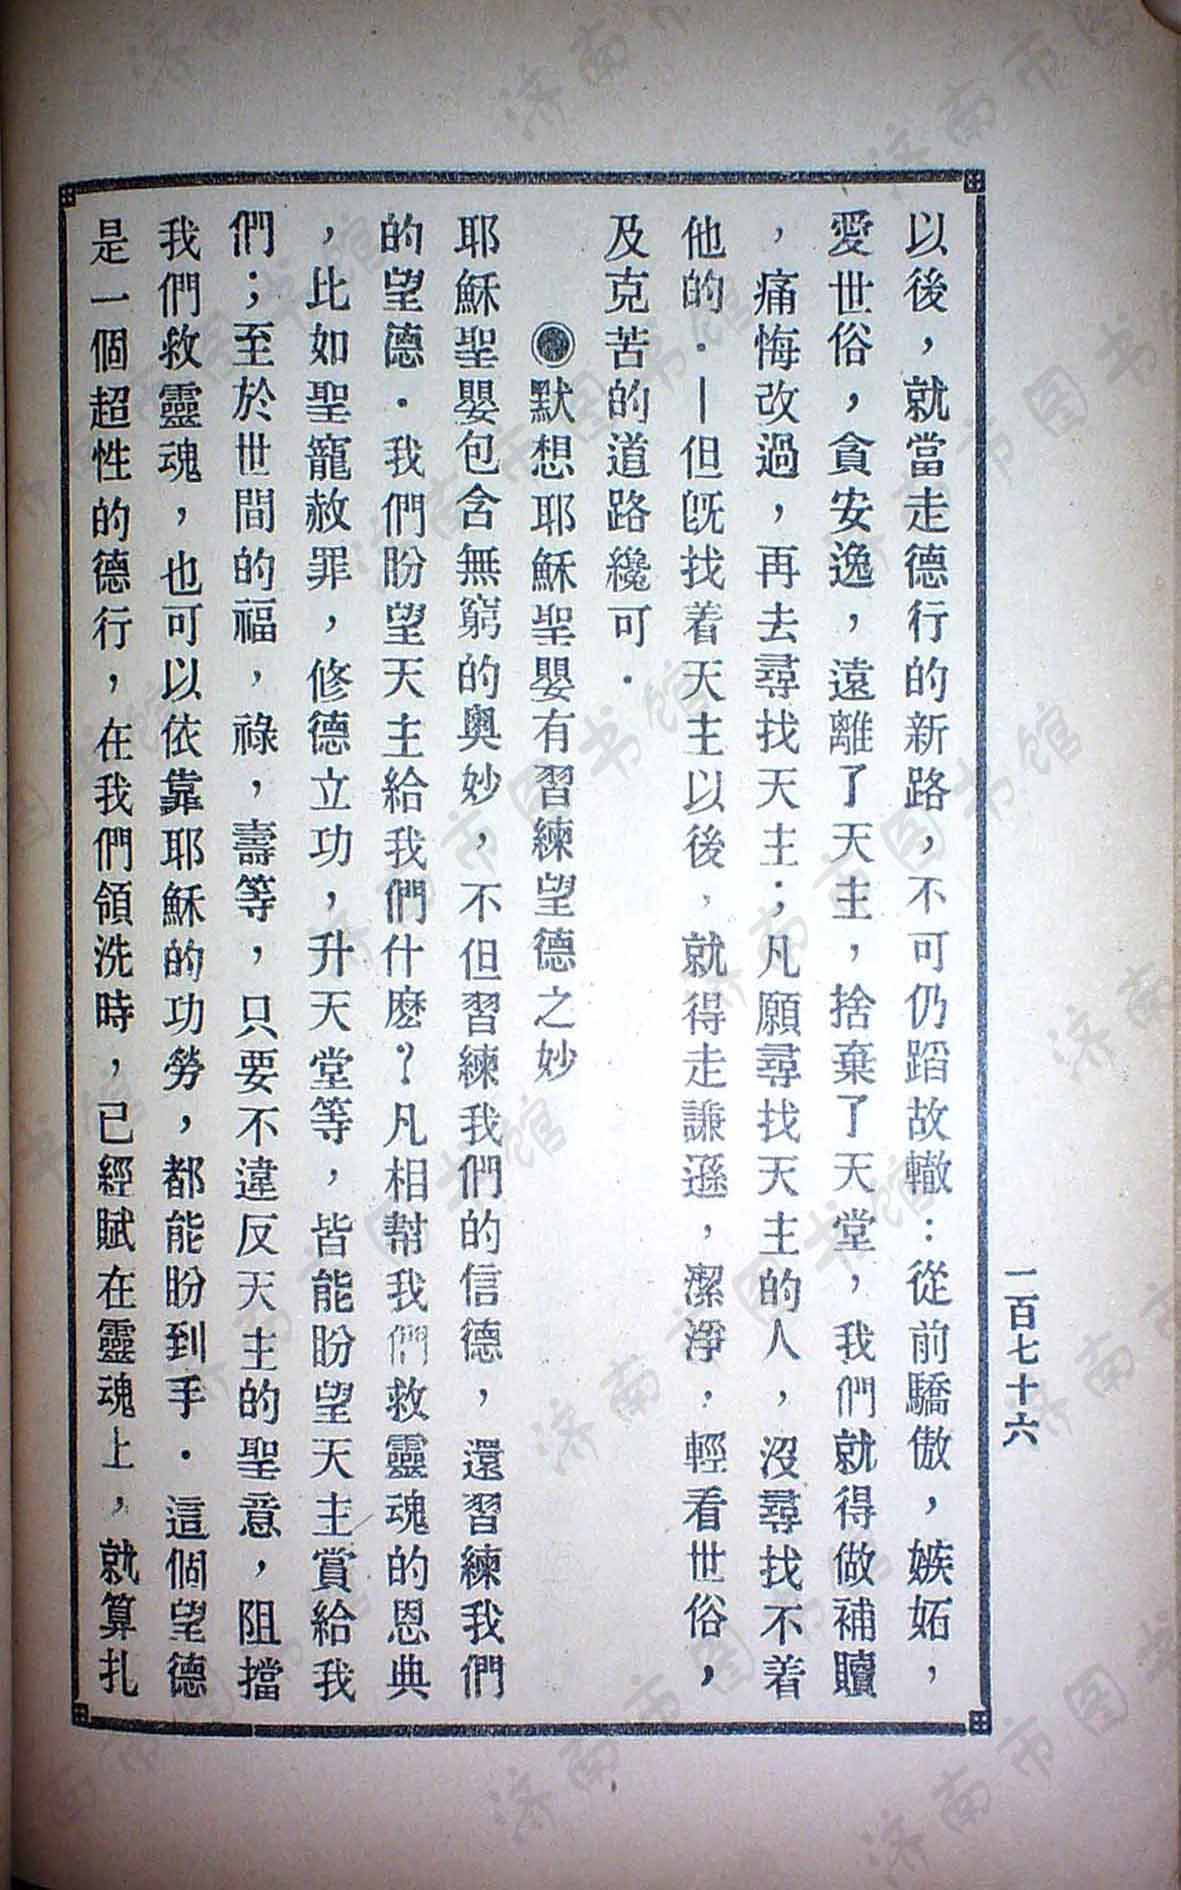 一百七十六
以後，就當走德行的新路，不可仍蹈故轍：從前驕傲，嫉妬，
愛世俗，貪安逸，遠離了天主，捨棄了天堂，我們就得做補贖
，痛悔改過，再去尋找天主；凡願尋找天主的人，沒尋找不着
他的．—但旣找着天主以後，就得走謙遜，潔淨，輕看世俗，
及克苦的道路纔可．
◉默想耶穌聖嬰有習練望德之妙
耶穌聖嬰包含無窮的奧妙，不但習練我們的信德，還習練我們
的望德．我們盼望天主給我們什麽？凡相幫我們救靈魂的恩典
，比如聖寵赦罪，修德立功，升天堂等，皆能盼望天主賞給我
們；至於世間的福，祿，壽等，只要不違反天主的聖意，阻擋
我們救靈魂，也可以依靠耶穌的功勞，都能盼到手．這個望德
是一個超性的德行，在我們領洗時，已經賦在靈魂上，就算扎
济南市图书馆